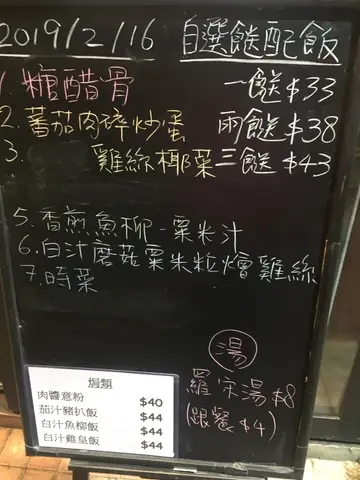 2019/2/16 自選餸配飯
1. 糖醋骨 一餸 $33
2. 蕃茄肉碎炒蛋 兩餸 $38
3. 雞絲椰菜 三餸 $43
5. 香煎魚柳-粟米汁
6. 白汁磨菇粟米粒燴雞絲
7. 時菜
湯
羅宋湯 $8
(跟餐 $4)
焗類
肉醬意粉 $40
茄汁豬扒飯 $44
白汁魚柳飯 $44
白汁雞皇飯 $44